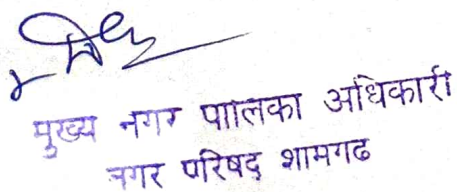 मुख्य नगर पालिका अधिकारी
नगर परिषद् शामगढ